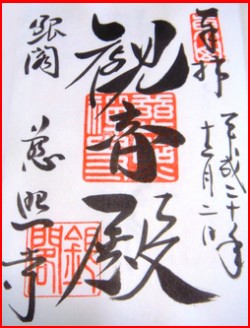 奉拝
平成二十年
十二月二日
観音殿
銀閣
慈照寺
銀閣